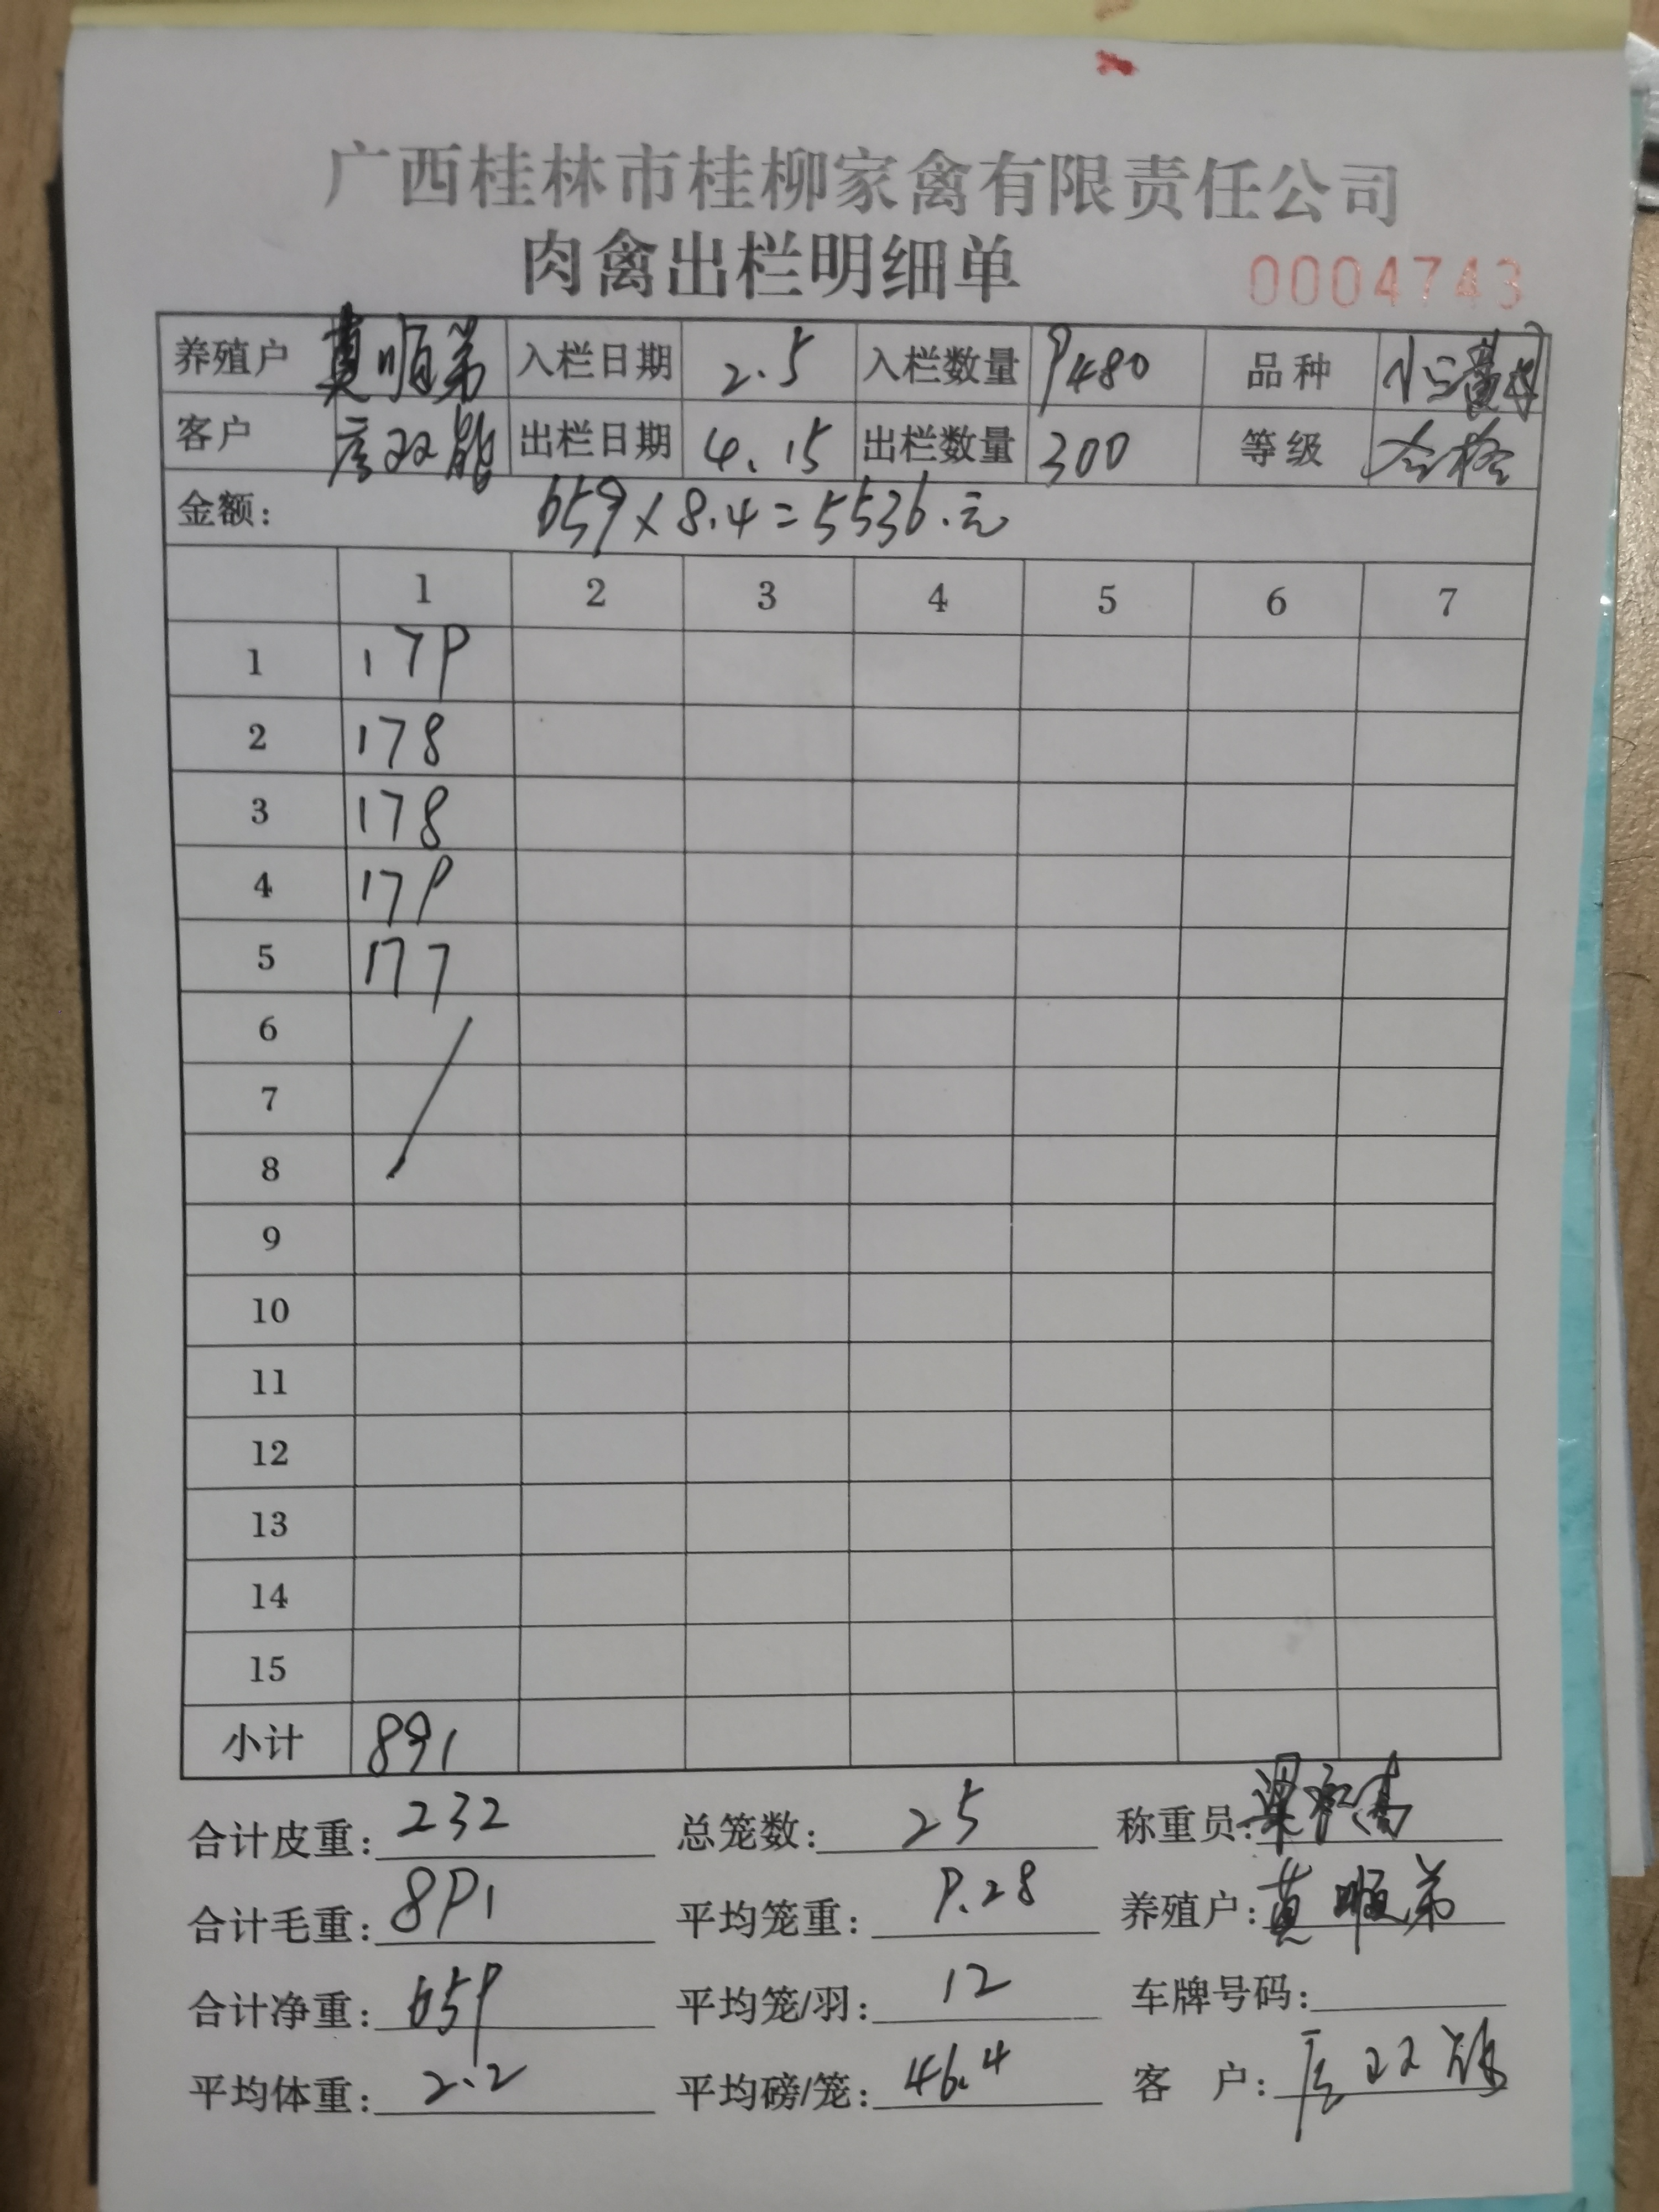 广西桂林市桂柳家禽有限责任公司
肉禽出栏明细单 0004743
养殖户 莫顺弟 入栏日期 2.5 入栏数量 9480 品种
客户 双能 出栏日期 4.15 出栏数量 300 等级 合格
金额: 659×8.4=5536.元
1 2 3 4 5 6 7
1 179
2 178
3 178
4 179
5 177
6
7
8
9
10
11
12
13
14
15
小计 891
合计皮重: 232 总笼数: 25 称重员:
合计毛重: 891 平均笼重: 9.28 养殖户: 莫顺弟
合计净重: 659 平均笼/羽: 12 车牌号码:
平均体重: 2.2 平均磅/笼: 46.4 客 户: